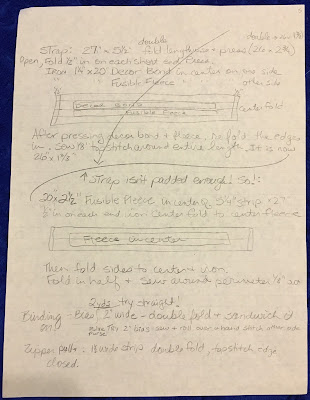 double
double + iron
Strap: 27" x 5½" fold lengthwise + press
Open, Fold ½" in on each short end
Iron 1¼ x 20" Decor Bond in center on one side
" Fusible Fleece " other side
Decor Bond
Fusible Fleece
center fold
After pressing decor bond + fleece, re fold the edges
in. Sew ⅛" topstitch around entire length. It is now
26 x 1⅜"
Strap isn't padded enough! So!:
20" x 2½" Fusible Fleece in center of 5¼" strip x 27"
½" in on each end iron center fold to center fleece
Fleece in center
Then fold sides to center + iron.
Fold in half + sew around perimeter ⅛" in
2yds try straight!
Binding - Bias 2" wide - double fold + sandwich it
on!
2" bias - sew + roll over + hand stitch other side
purse
Zipper pulls: 1⅛ wide strip double fold, topstitch edge
closed.